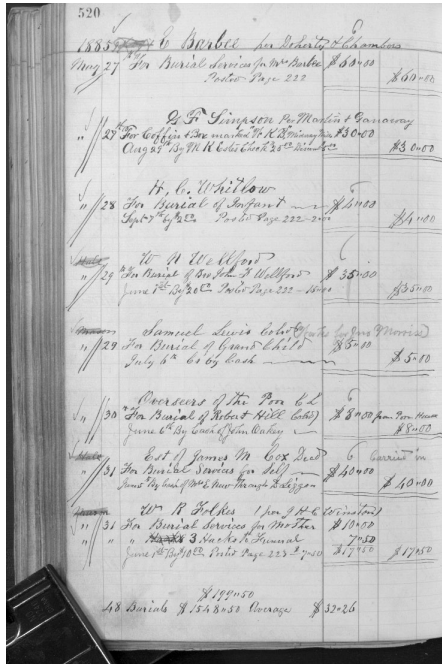 520
1885 E Barbee per Doherty & Chambers
May 27 For Burial Services for Mr Barbee $60.00
Posted Page 222 $60.00
G F Simpson Per Martin & Danaway
27th For Coffin & Box marked $30.00
Aug 29th By M K 25 $30.00
H. C. Whitlow
28 For Burial of Infant $4.00
Sept 7th by 2.00 Posted Page 222 - 2.00 $4.00
W N Wellford
29 For Burial of John F Wellford $35.00
June 1st By 20.00 Posted Page 222 - 15.00 $35.00
Samuel Lewis Cold
29 For Burial of Grand Child $5.00
July 6th By Cash $5.00
Overseers of the Poor
30 For Burial of Robert Hill Cold $8.00 from Poor House
June 6th By Cash of John Oakey $8.00
Est of James M Cox Decd Carried in
31 For Burial Services for Self $40.00
By Cash of Mrs E through $40.00
W R Folkes per J H C Winston
31 For Burial Services for Mother $10.00
" " 3 Hacks to Funeral 7.50
June 1st By 10.00 Posted Page 223 $7.50 $17.50 $17.50
$199.50
48 Burials $1548.50 Average $32.26